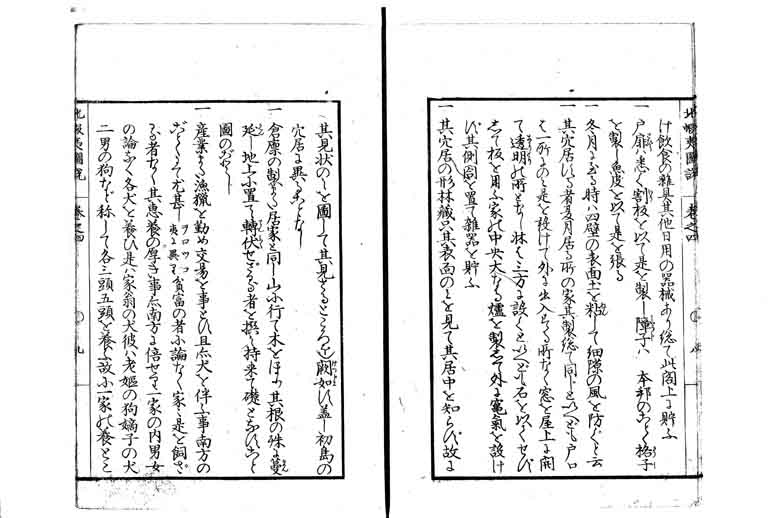 北蝦夷圖説 巻之四
け飲食の雜具其他日用の器械あり総て此閣上に貯ふ
一 戸扉は悉く割板を以て是を製し障子ハ 本邦のごとく格子
を製し魚皮を以て是を張る
一 冬月に至る時ハ四壁の表面土を粘して細隙の風を防ぐと云
一 其穴居いる者夏月居る所の家其製総て同じといへども戸口
は一所のミ是を設けて外に出入らる所なく窓を屋上に開
て透明の所となし牀は三方に設くといへども石を以くせず
して板を用ふ家の中央大なる爐を製して外に竈氣を設け
ず其側図を置て雜器を貯ふ
一 其穴居の形牀藏只其表面のミを見て其居中を知らず故に
其見状のミを圖して其見ざるところハ闕如ひ蓋し初島の
穴居に異る事なし
一 倉廪の製また居家と同し山に行て木をほり其根の恠に蔓
延し地上に置て轉伏せざる者を撰ミ持来て礎となひこと
圖のごとし
一 産業また漁獵を勤め交易を事とひ且犬を伴ふ事南方の
ごとくにて尤甚し ヲロツコ夷に異す 貧富の者に論なく家々是を飼ざ
る者なし其恩養の厚き事亦南方に倍せり一家の内男女
の論なく各犬を養ひ是ハ家翁の犬彼ハ老嫗の狗嫡子の犬
二男の狗など称して各三頭五頭を養ふ故に一家の養とこ
北蝦夷圖説 巻之四 九